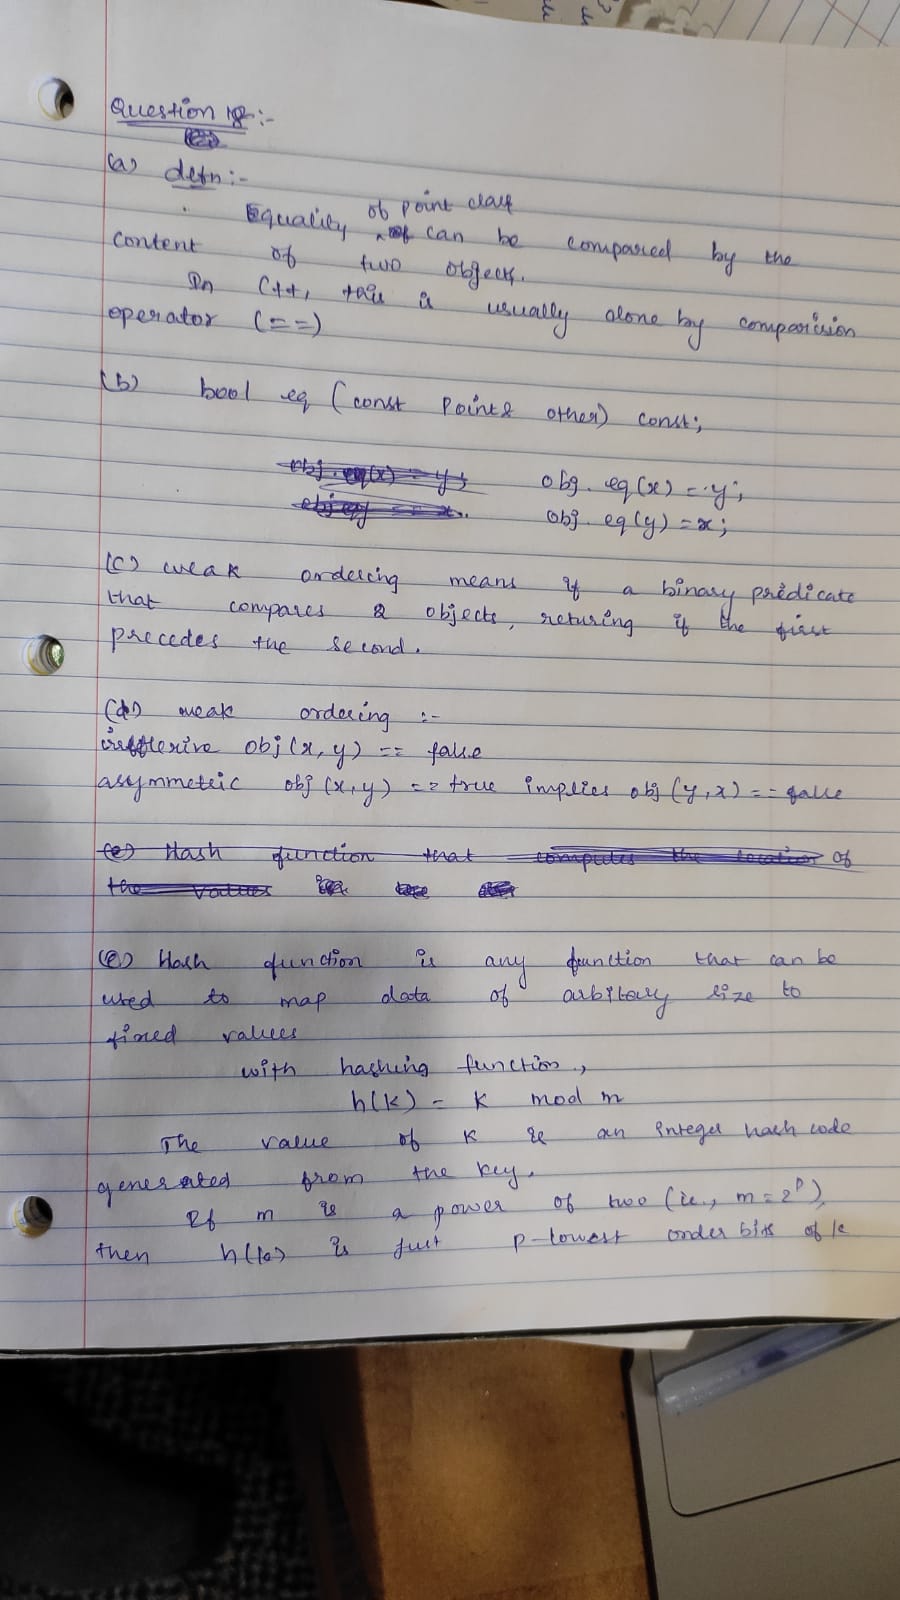 Question 18:-
(a) defn:-
of point class
Equality can be compared by the
content of two objects.
In C++, this is usually done by comparision
operator (==)
(b) bool eq (const Point& other) const;
obj. eq(x) = y; obj. eq(x) = y;
obj. eq(y) = x;
(c) weak ordering means if a binary predicate
that compares 2 objects, returing if the first
precedes the second.
(d) weak ordering :-
irefflexive obj(x, y) == false
asymmetric obj (x, y) == true implies obj (y, x) == false
(e) Hash function that computes the location of
the values
(e) Hash function is any function that can be
used to map data of arbitary size to
fixed values
with hashing function,
h(k) = k mod m
The value of K is an integer hash code
generated from the key.
If m is a power of two (ie., m = 2^p),
then h(k) is just p-lowest order bits of k